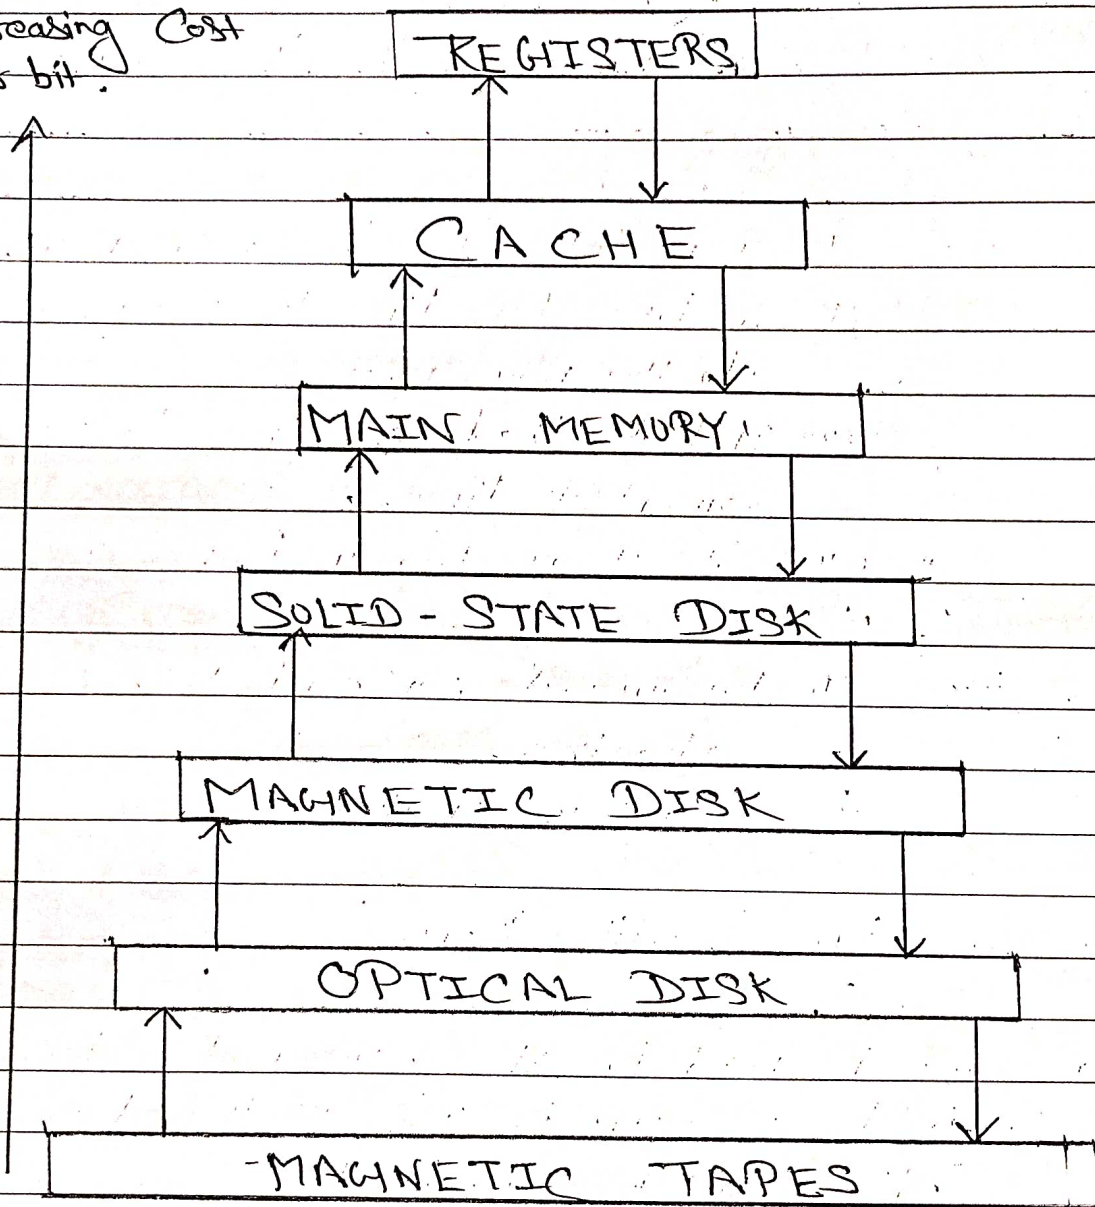 reasing Cost
bit.
REGISTERS
CACHE
MAIN MEMORY
SOLID-STATE DISK
MAGNETIC DISK
OPTICAL DISK
MAGNETIC TAPES